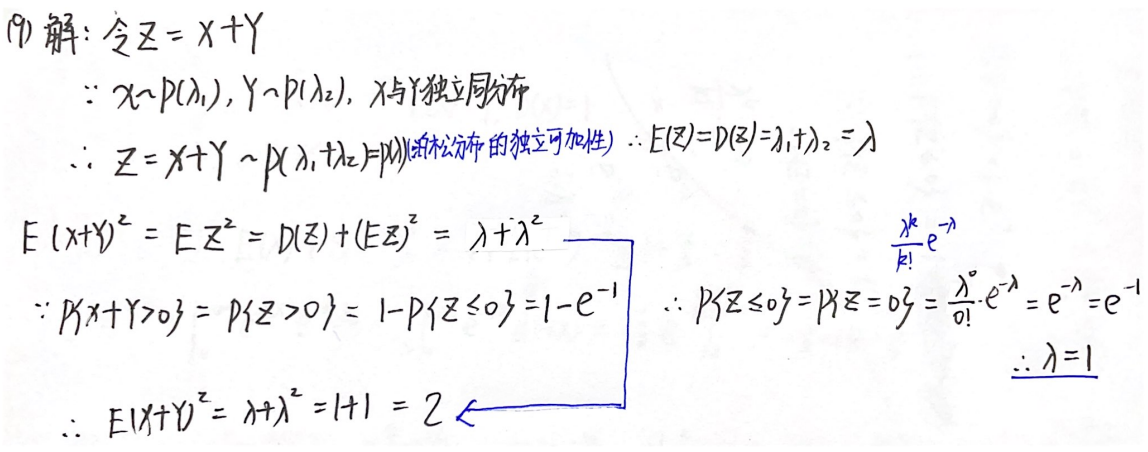 (9) 解: 令Z = X+Y
∵ X~P(λ₁), Y~P(λ₂), X与Y独立同分布
∴ Z = X+Y ~ P(λ₁+λ₂)=P(λ)(泊松分布的独立可加性) ∴ E(Z)=D(Z)=λ₁+λ₂ = λ
E(X+Y)² = EZ² = D(Z)+(EZ)² = λ+λ²
λᵏ/k! e^{-λ}
∵ P{X+Y>0} = P{Z>0} = 1-P{Z≤0} = 1-e⁻¹ ∴ P{Z≤0} = P{Z=0} = λ⁰/0! · e^{-λ} = e^{-λ} = e⁻¹
∴ λ=1
∴ E(X+Y)² = λ+λ² = 1+1 = 2